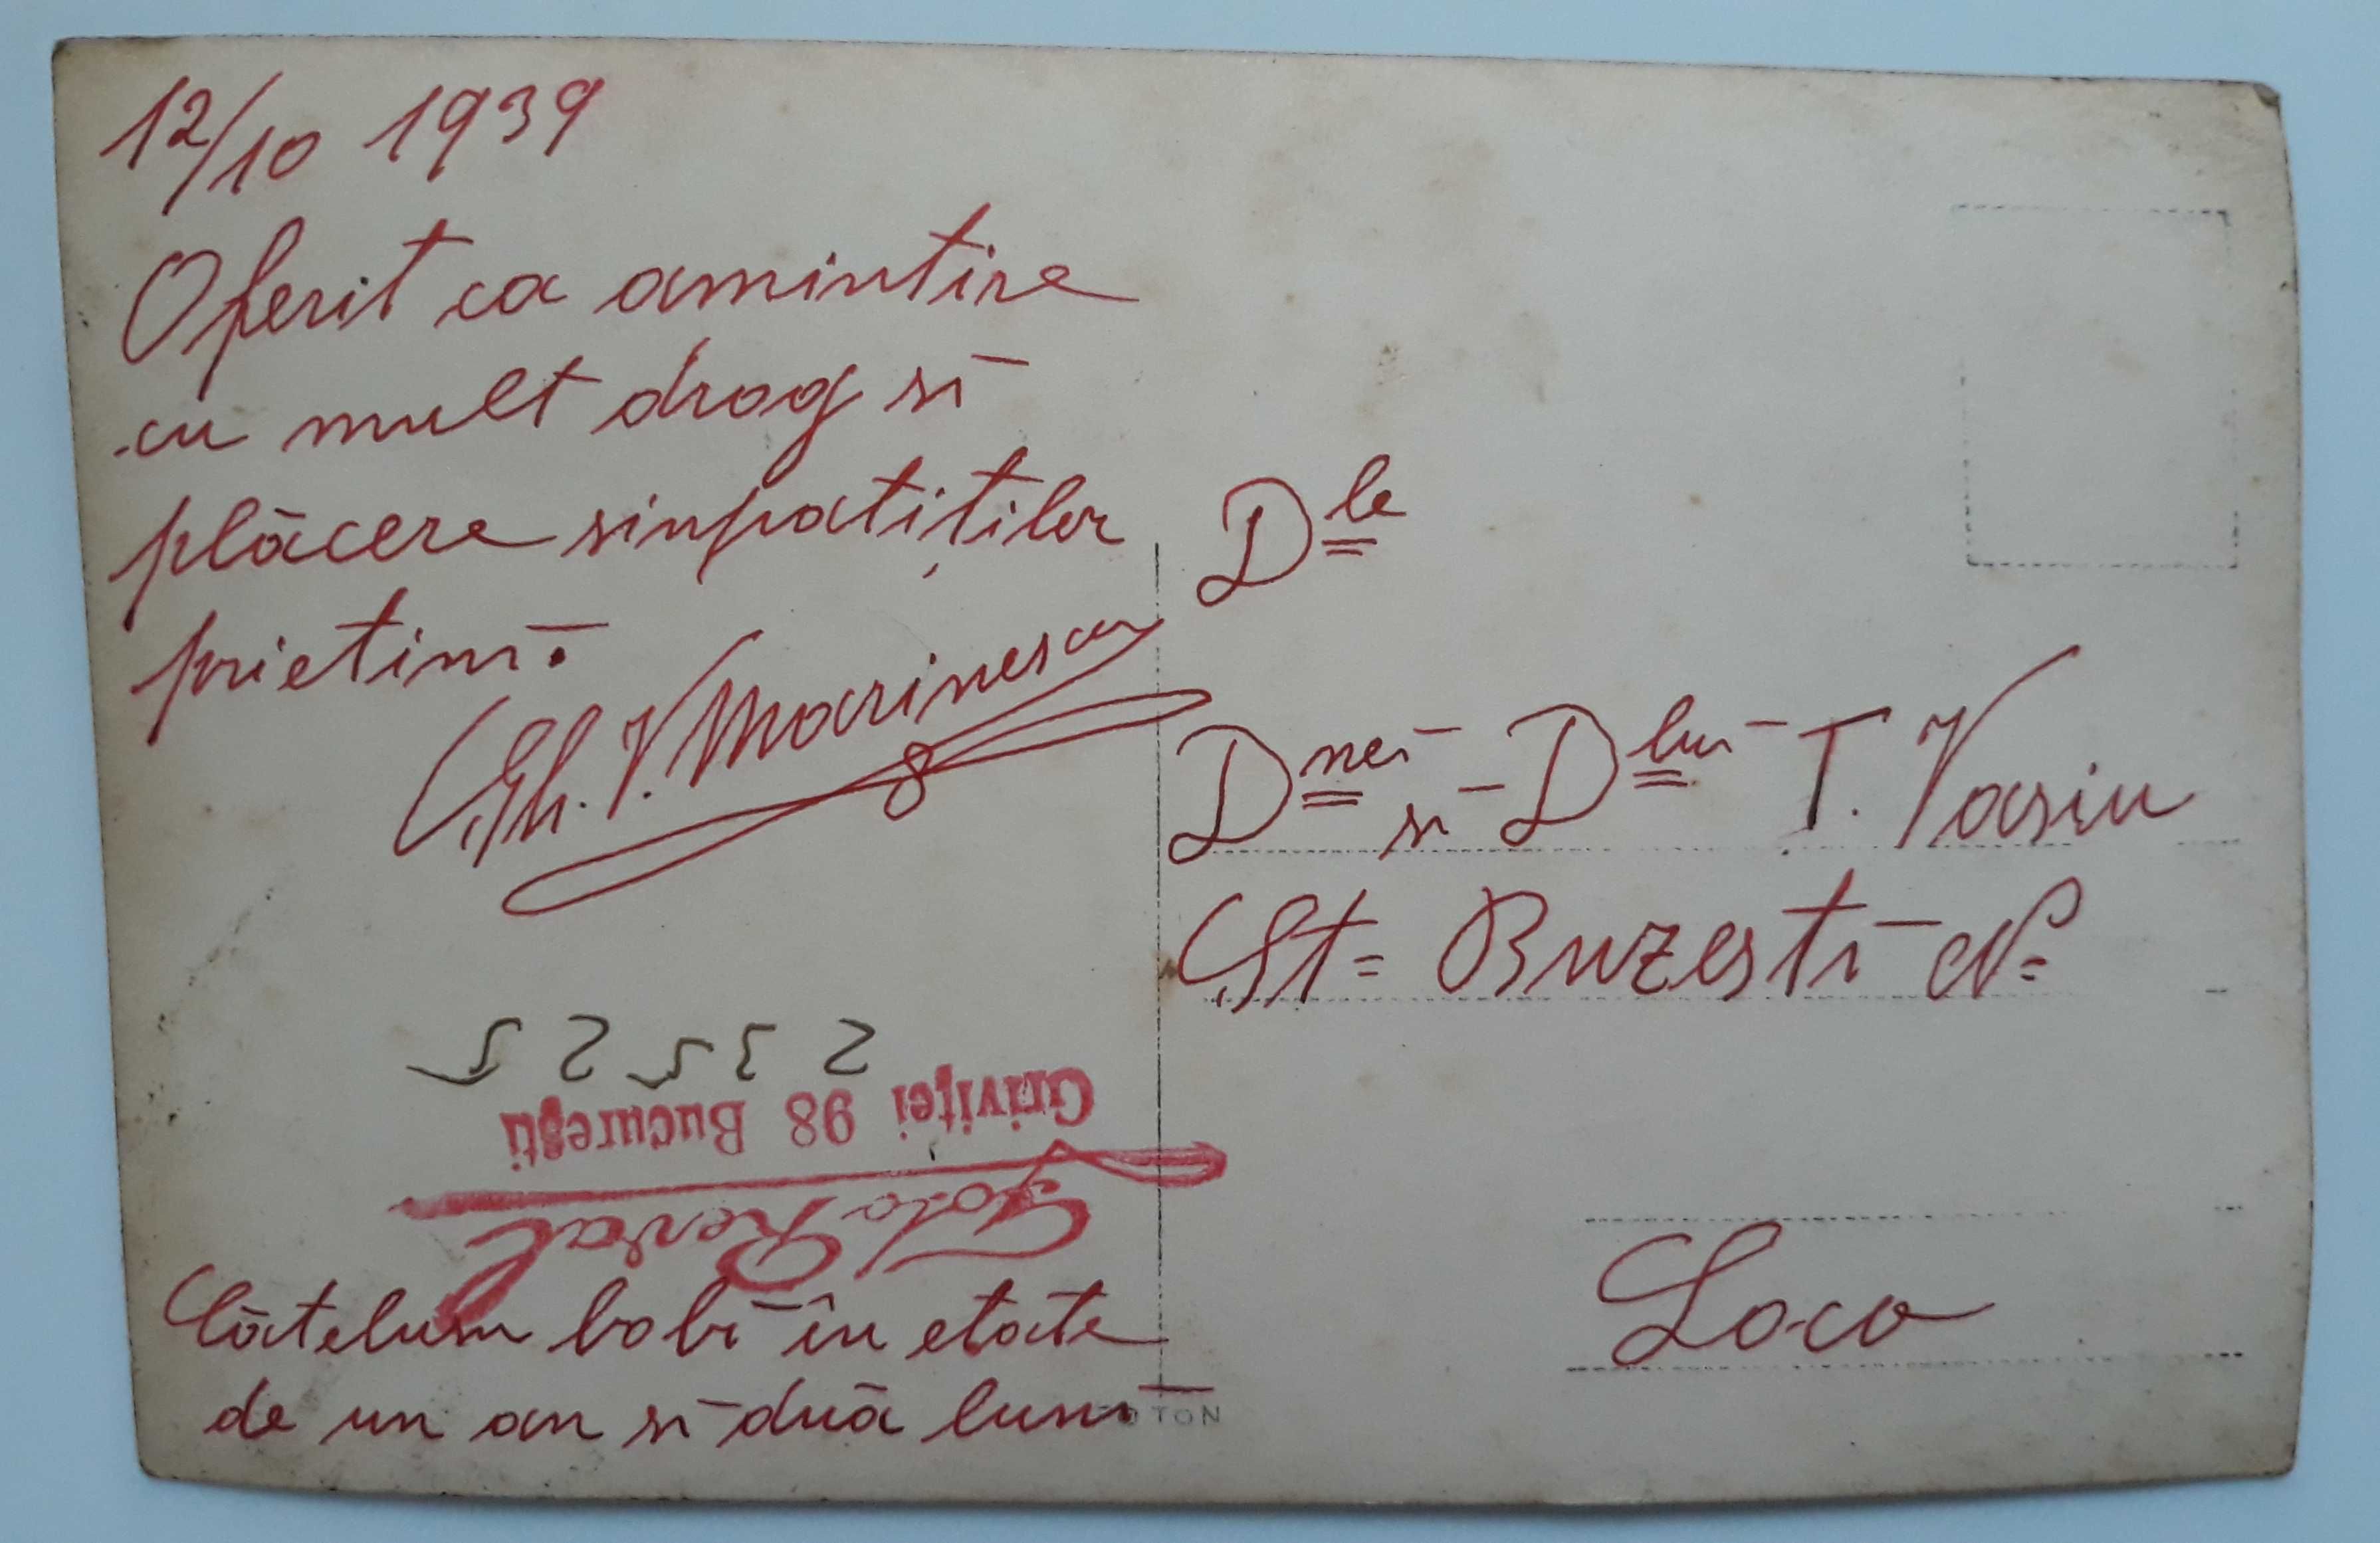 12/10 1939
Oferit ca amintire
cu mult drag si
plăcere sinpatiților
prietini.
Gh. V. Marinescu
Dle
Dnei si Dlui T. Vasiu
St= Buzesti No
Loco
23525
Griviței 98 București
Foto Regal
Cātelum bobi în etate
de un an si duă luni
FOTON